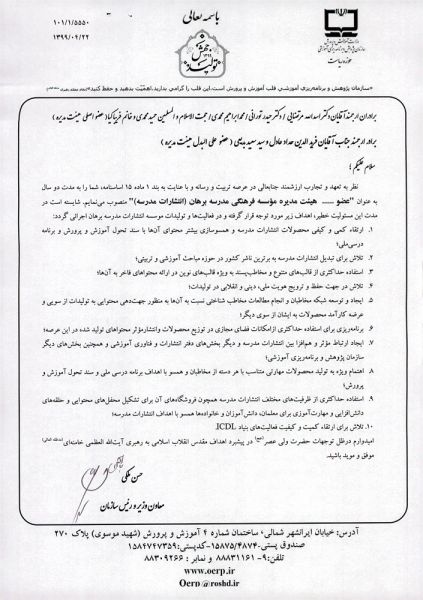 باسمه تعالی
۱۰۱/۱/۵۵۵۰
۱۳۹۹/۰۴/۲۲
جهش تولید
وزارت آموزش و پرورش
سازمان پژوهش و برنامه‌ریزی آموزشی
حوزه ریاست
«سازمان پژوهش و برنامه‌ریزی آموزشی قلب آموزش و پرورش است، این قلب را گرامی بدارید، اهمیّت بدهید و حفظ کنید.»
برادران ارجمند آقایان دکتر اسدالله مرتضایی / دکتر حیدر تورانی / محمد ابراهیم محمدی / حجت الاسلام و المسلمین حمید محمدی و خانم فریبا کیا (عضو اصلی هیئت مدیره)
برادر ارجمند جناب آقایان فرید الدین حداد عادل و سید سعید بدیعی (عضو علی البدل هیئت مدیره)
سلام علیکم؛
نظر به تعهد و تجارب ارزشمند جنابعالی در عرصه تربیت و رسانه و با عنایت به بند ۱ ماده ۱۵ اساسنامه، شما را به مدت دو سال
به عنوان "عضو ...... هیئت مدیره مؤسسه فرهنگی مدرسه برهان (انتشارات مدرسه)" منصوب می‌نمایم. شایسته است در مدت
این مسئولیت خطیر، اهداف زیر مورد توجه قرار گرفته و در فعالیت‌ها و تولیدات موسسه انتشارات مدرسه برهان اجرائی گردد:
۱. ارتقاء کمی و کیفی محصولات انتشارات مدرسه و همسوسازی بیشتر محتوای آن‌ها با سند تحول آموزش و پرورش و برنامه
درسی‌ملی؛
۲. تلاش برای تبدیل انتشارات مدرسه به برترین ناشر کشور در حوزه مباحث آموزشی و تربیتی؛
۳. استفاده حداکثری از قالب‌های متنوع و مخاطب‌پسند به ویژه قالب‌های نوین در ارائه محتواهای فاخر به آن‌ها؛
۴. تلاش در جهت حفظ و ترویج هویت ملی، دینی و انقلابی در تولیدات؛
۵. ایجاد و توسعه شبکه مخاطبان و انجام مطالعات مخاطب شناختی نسبت به آن‌ها به منظور جهت‌دهی محتوایی به تولیدات از سویی و
عرضه کارآمد محصولات به ایشان از سوی دیگر؛
۶. برنامه‌ریزی برای استفاده حداکثری ازامکانات فضای مجازی در توزیع محصولات وانتشارمؤثر محتواهای تولید شده در این عرصه؛
۷. ایجاد ارتباط مؤثر و هم‌افزا بین انتشارات مدرسه و دیگر بخش‌های دفتر انتشارات و فناوری آموزشی و همچنین بخش‌های دیگر
سازمان پژوهش و برنامه‌ریزی آموزشی؛
۸. اهتمام ویژه به تولید محصولات مهارتی متناسب با هر دسته از مخاطبان و همسو با اهداف برنامه درسی ملی و سند تحول آموزش و
پرورش؛
۹. استفاده حداکثری از ظرفیت‌های مختلف انتشارات مدرسه همچون فروشگاه‌های آن برای تشکیل محفل‌های محتوایی و حلقه‌های
دانش‌افزایی و مهارت‌آموزی برای معلمان، دانش‌آموزان و خانواده‌ها همسو با اهداف انتشارات مدرسه؛
۱۰. تلاش برای ارتقاء کمیت و کیفیت فعالیت‌های بنیاد ICDL.
امیدوارم درظل توجهات حضرت ولی عصر (عج) در پیشبرد اهداف مقدس انقلاب اسلامی به رهبری آیت‌الله العظمی خامنه‌ای (مدظله العالی)
موفق و موید باشید.
حسن ملکی
معاون وزیر و رئیس سازمان
آدرس: خیابان ایرانشهر شمالی، ساختمان شماره ۴ آموزش و پرورش (شهید موسوی) پلاک ۲۷۰
صندوق پستی: ۱۵۸۷۵/۴۸۷۴-کدپستی: ۱۵۸۴۷۴۷۳۵۹
تلفن: ۹-۸۸۸۳۱۱۶۱ و نمابر: ۸۸۳۰۹۲۶۶
www.oerp.ir
Oerp @roshd.ir